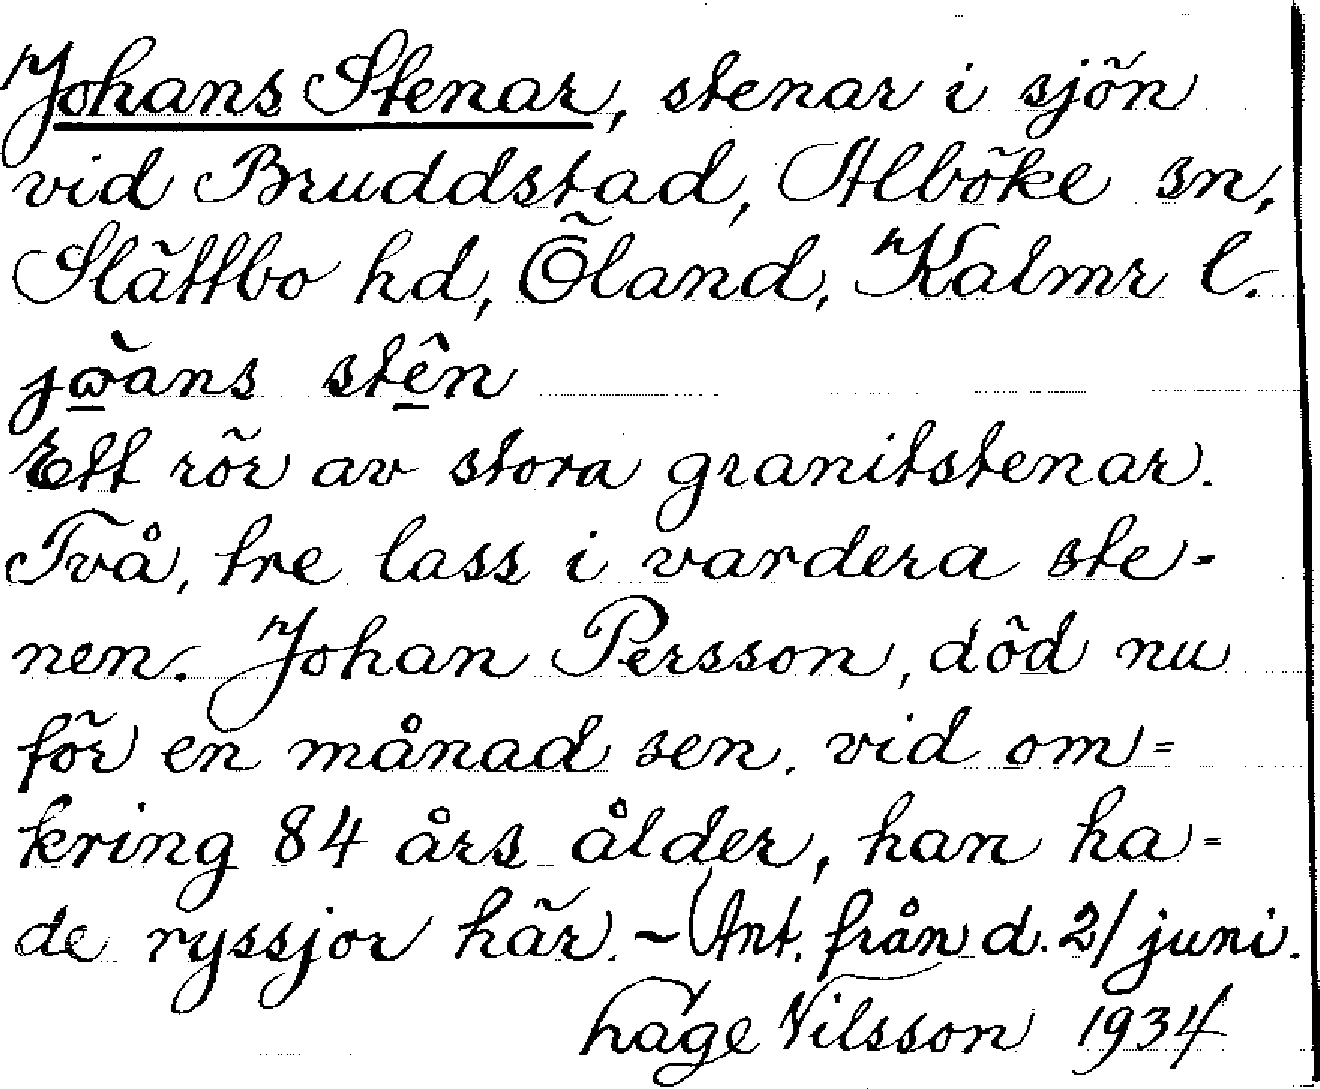 Johans Stenar, stenar i sjön
vid Bruddstad, Alböke sn,
Slättbo hd, Öland, Kalmr l.
stên
Ett rör av stora granitstenar.
Två, tre lass i vardera ste-
nen. Johan Persson, död nu
för en månad sen. vid om=
kring 84 års ålder, han ha=
de ryssjor här. – Ant. från d. 2/ juni.
Hage Nilsson 1934